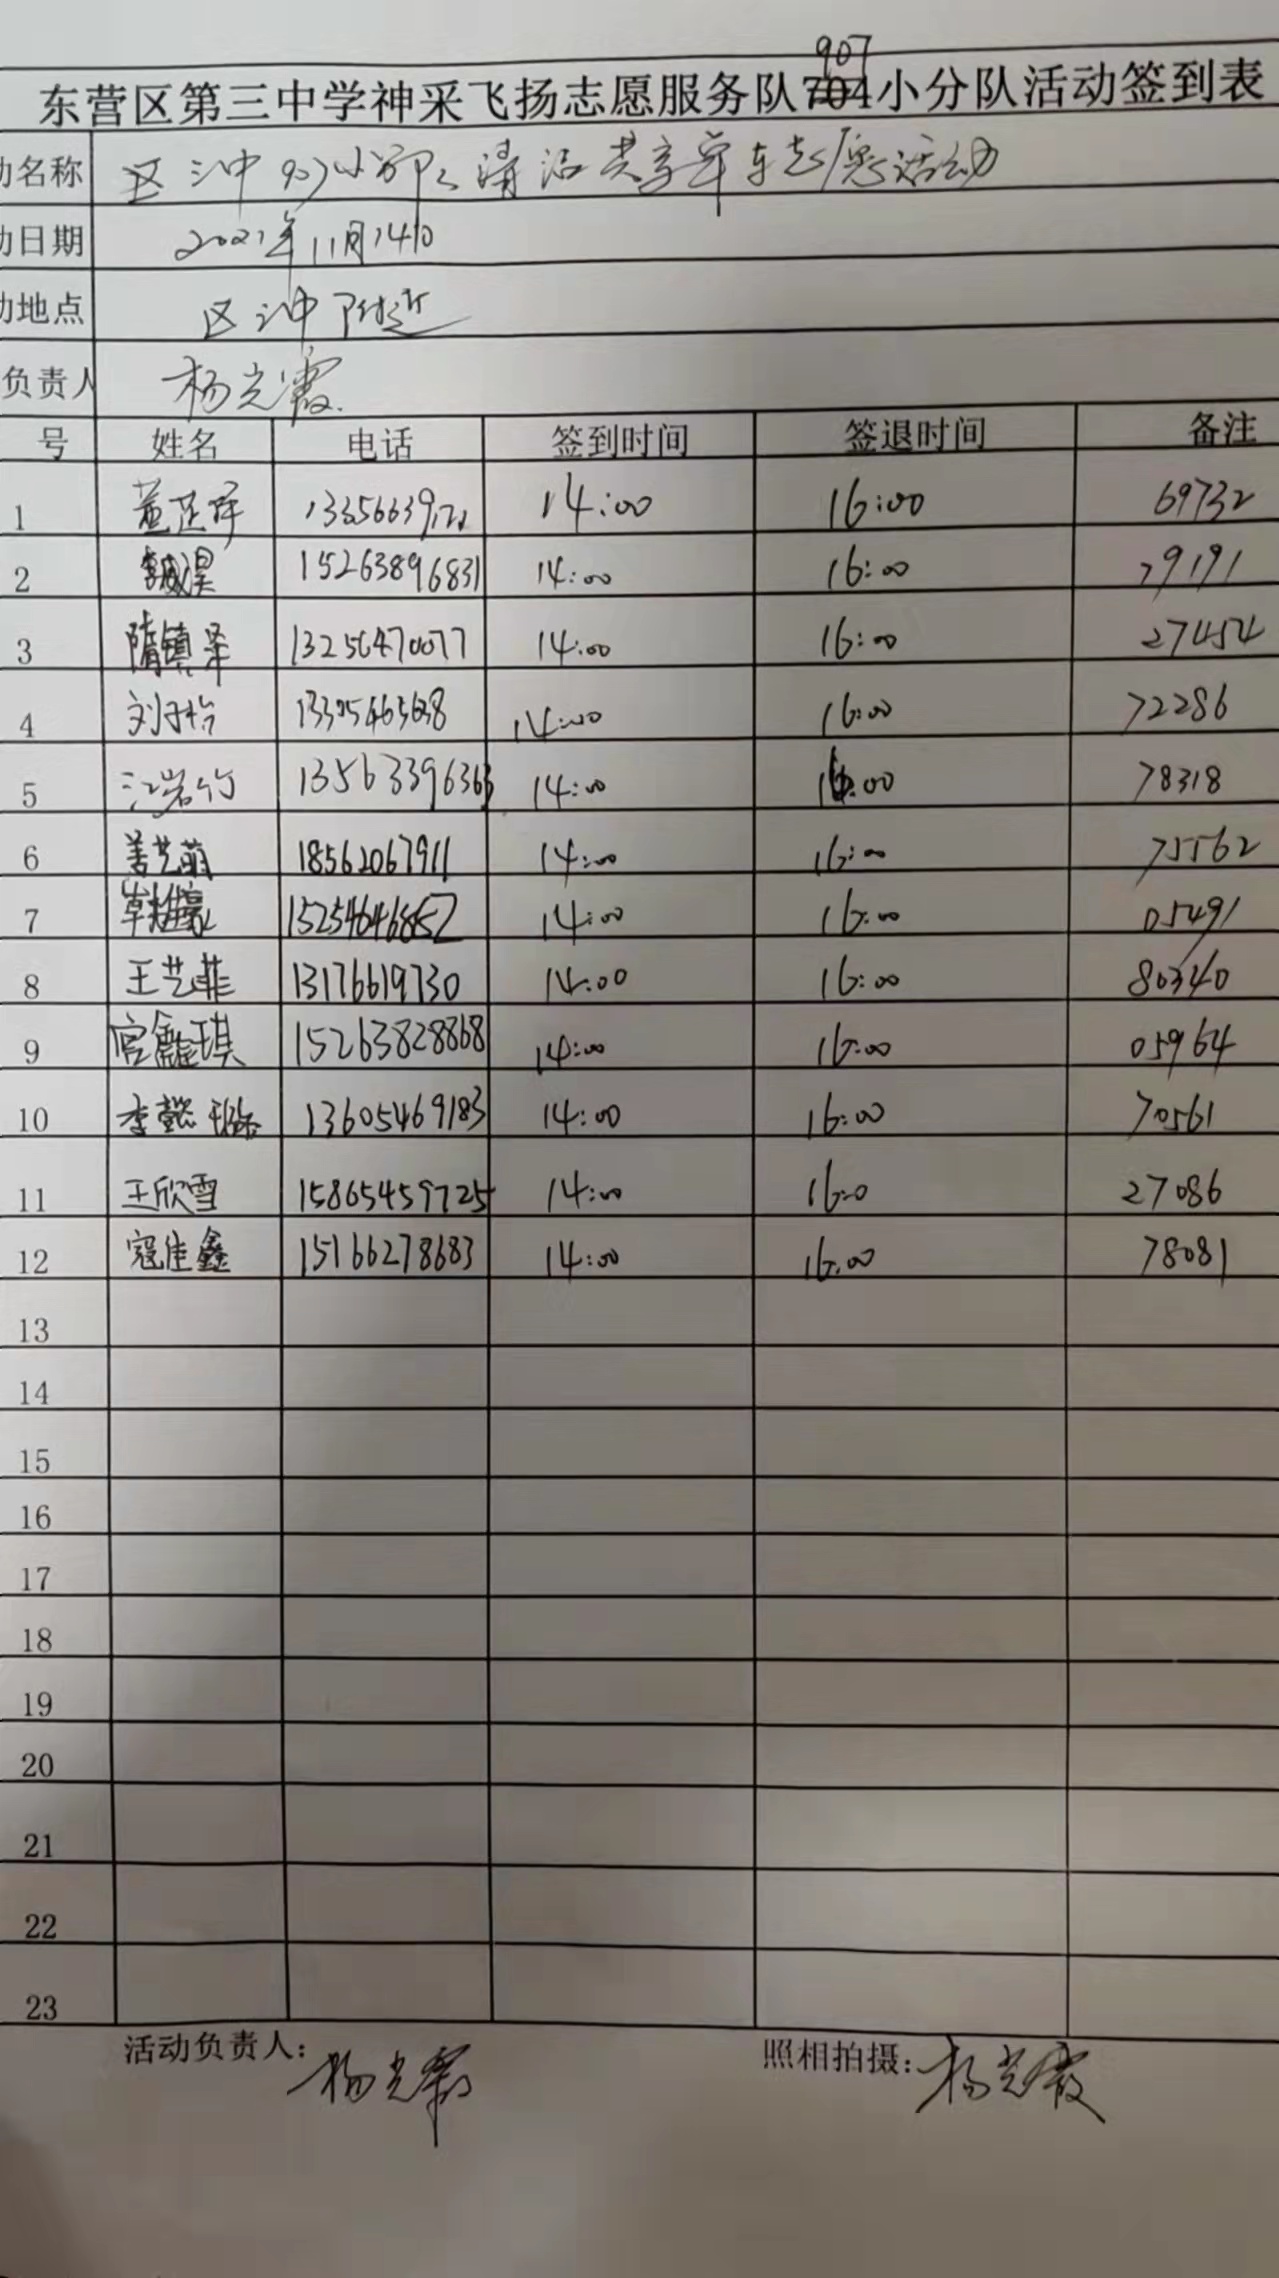 907
东营区第三中学神采飞扬志愿服务队704小分队活动签到表
动名称 区三中907小分队清洁共享单车志愿活动
动日期 2021年11月14日
动地点 区三中附近
负责人 杨光霞
号 姓名 电话 签到时间 签退时间 备注
1 14:00 16:00 69732
2 15263896831 14:00 16:00 79191
3 隋镇泽 13256470077 14:00 16:00 27454
4 刘子怡 14:00 16:00 72286
5 江岩竹 13563396363 14:00 16:00 78318
6 姜艺萌 18562067911 14:00 16:00 75562
7 14:00 16:00 05491
8 王艺菲 13176619730 14:00 16:00 80340
9 宫鑫琪 15263828868 14:00 16:00 05964
10 李懿璐 13605469183 14:00 16:00 70561
11 王欣雪 15865459725 14:00 16:00 27086
12 寇佳鑫 15166278683 14:00 16:00 78081
13
14
15
16
17
18
19
20
21
22
23
活动负责人: 杨光霞 照相拍摄: 杨光霞